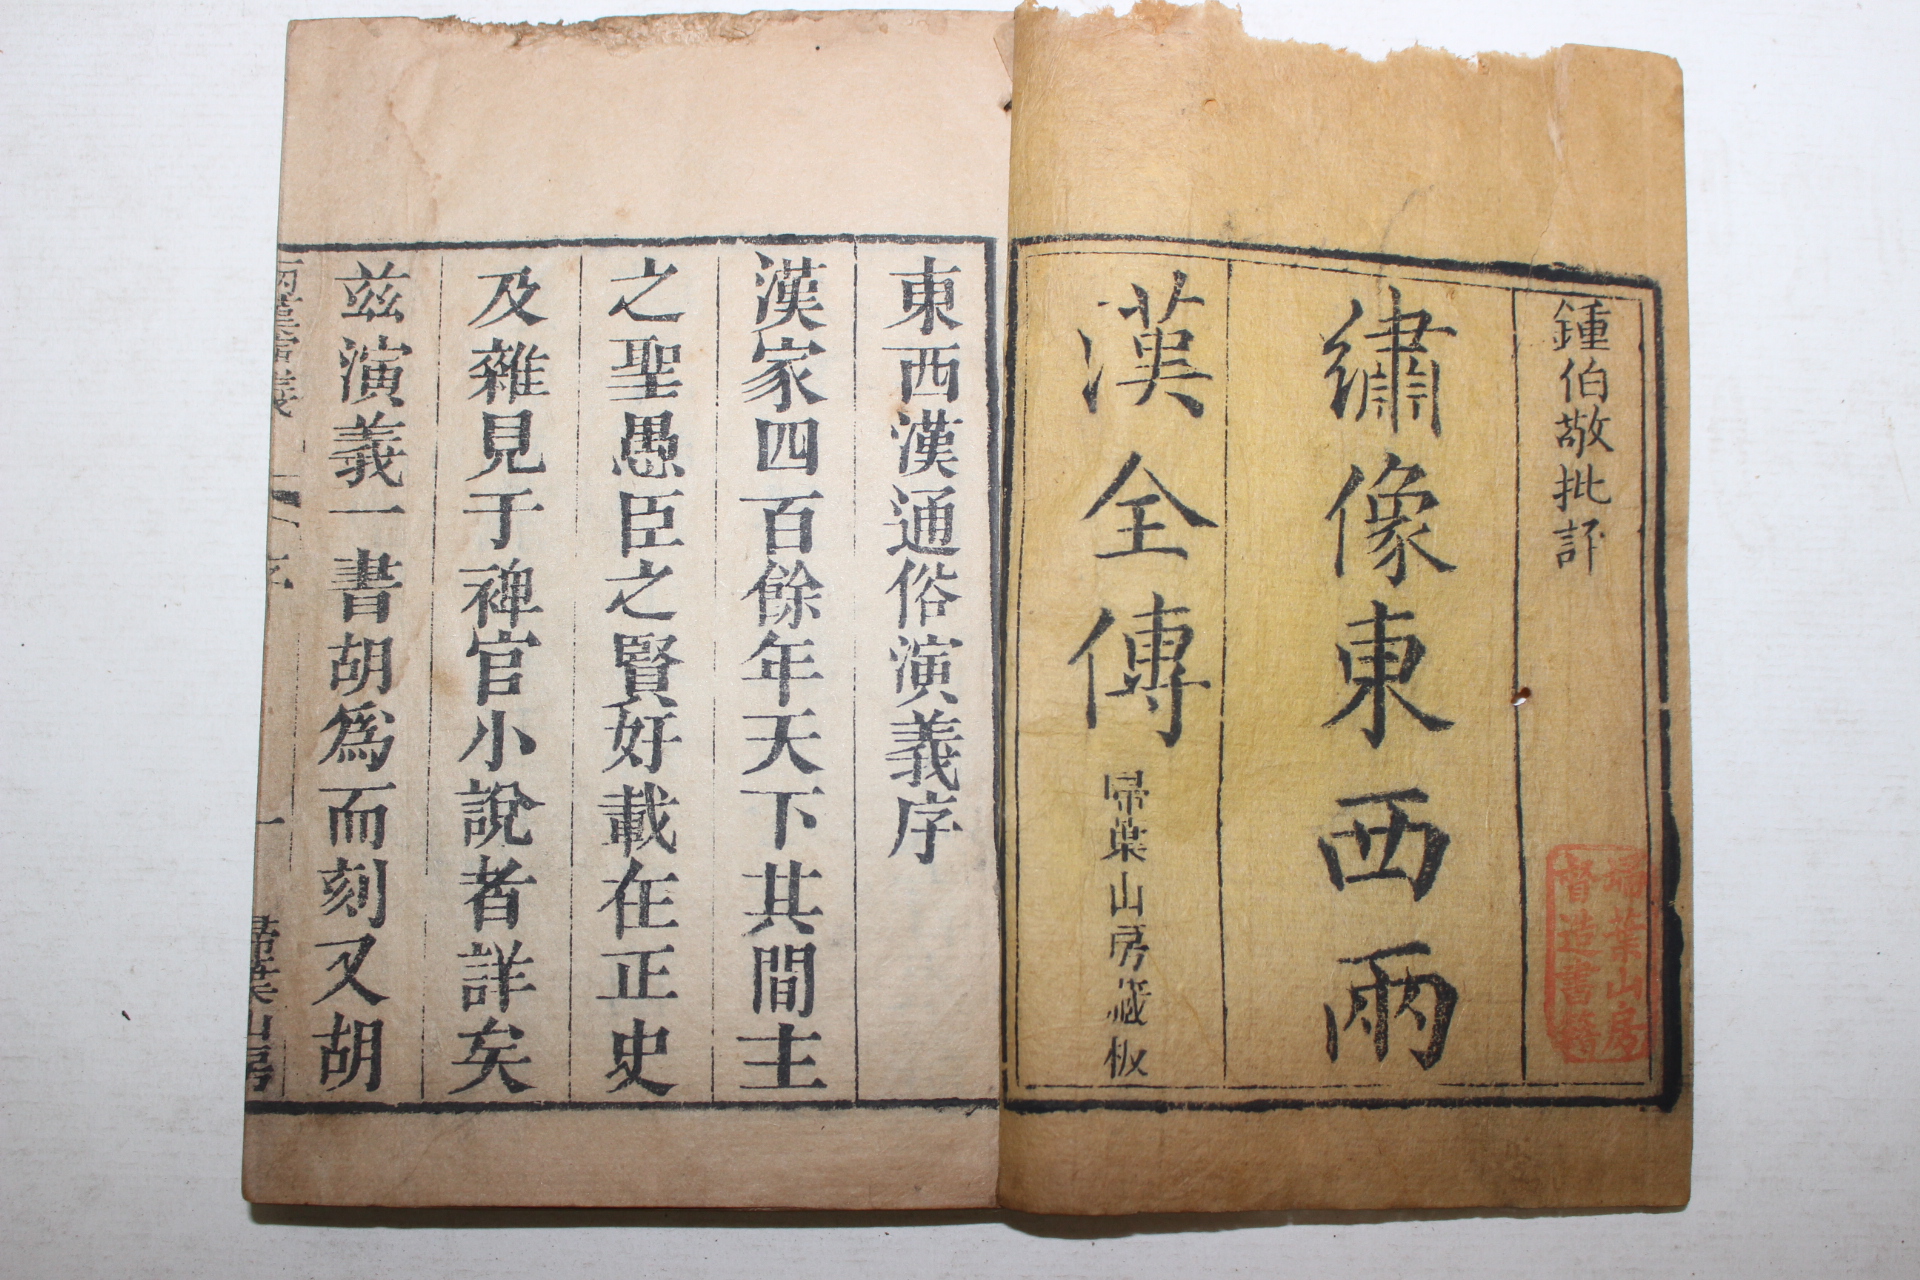 鍾伯敬批評
繡像東西兩
漢全傳
掃葉山房藏板
掃葉山房
督造書籍
東西漢通俗演義序
漢家四百餘年天下其間主
之聖愚臣之賢好載在正史
及雜見于稗官小說者詳矣
茲演義一書胡爲而刻又胡